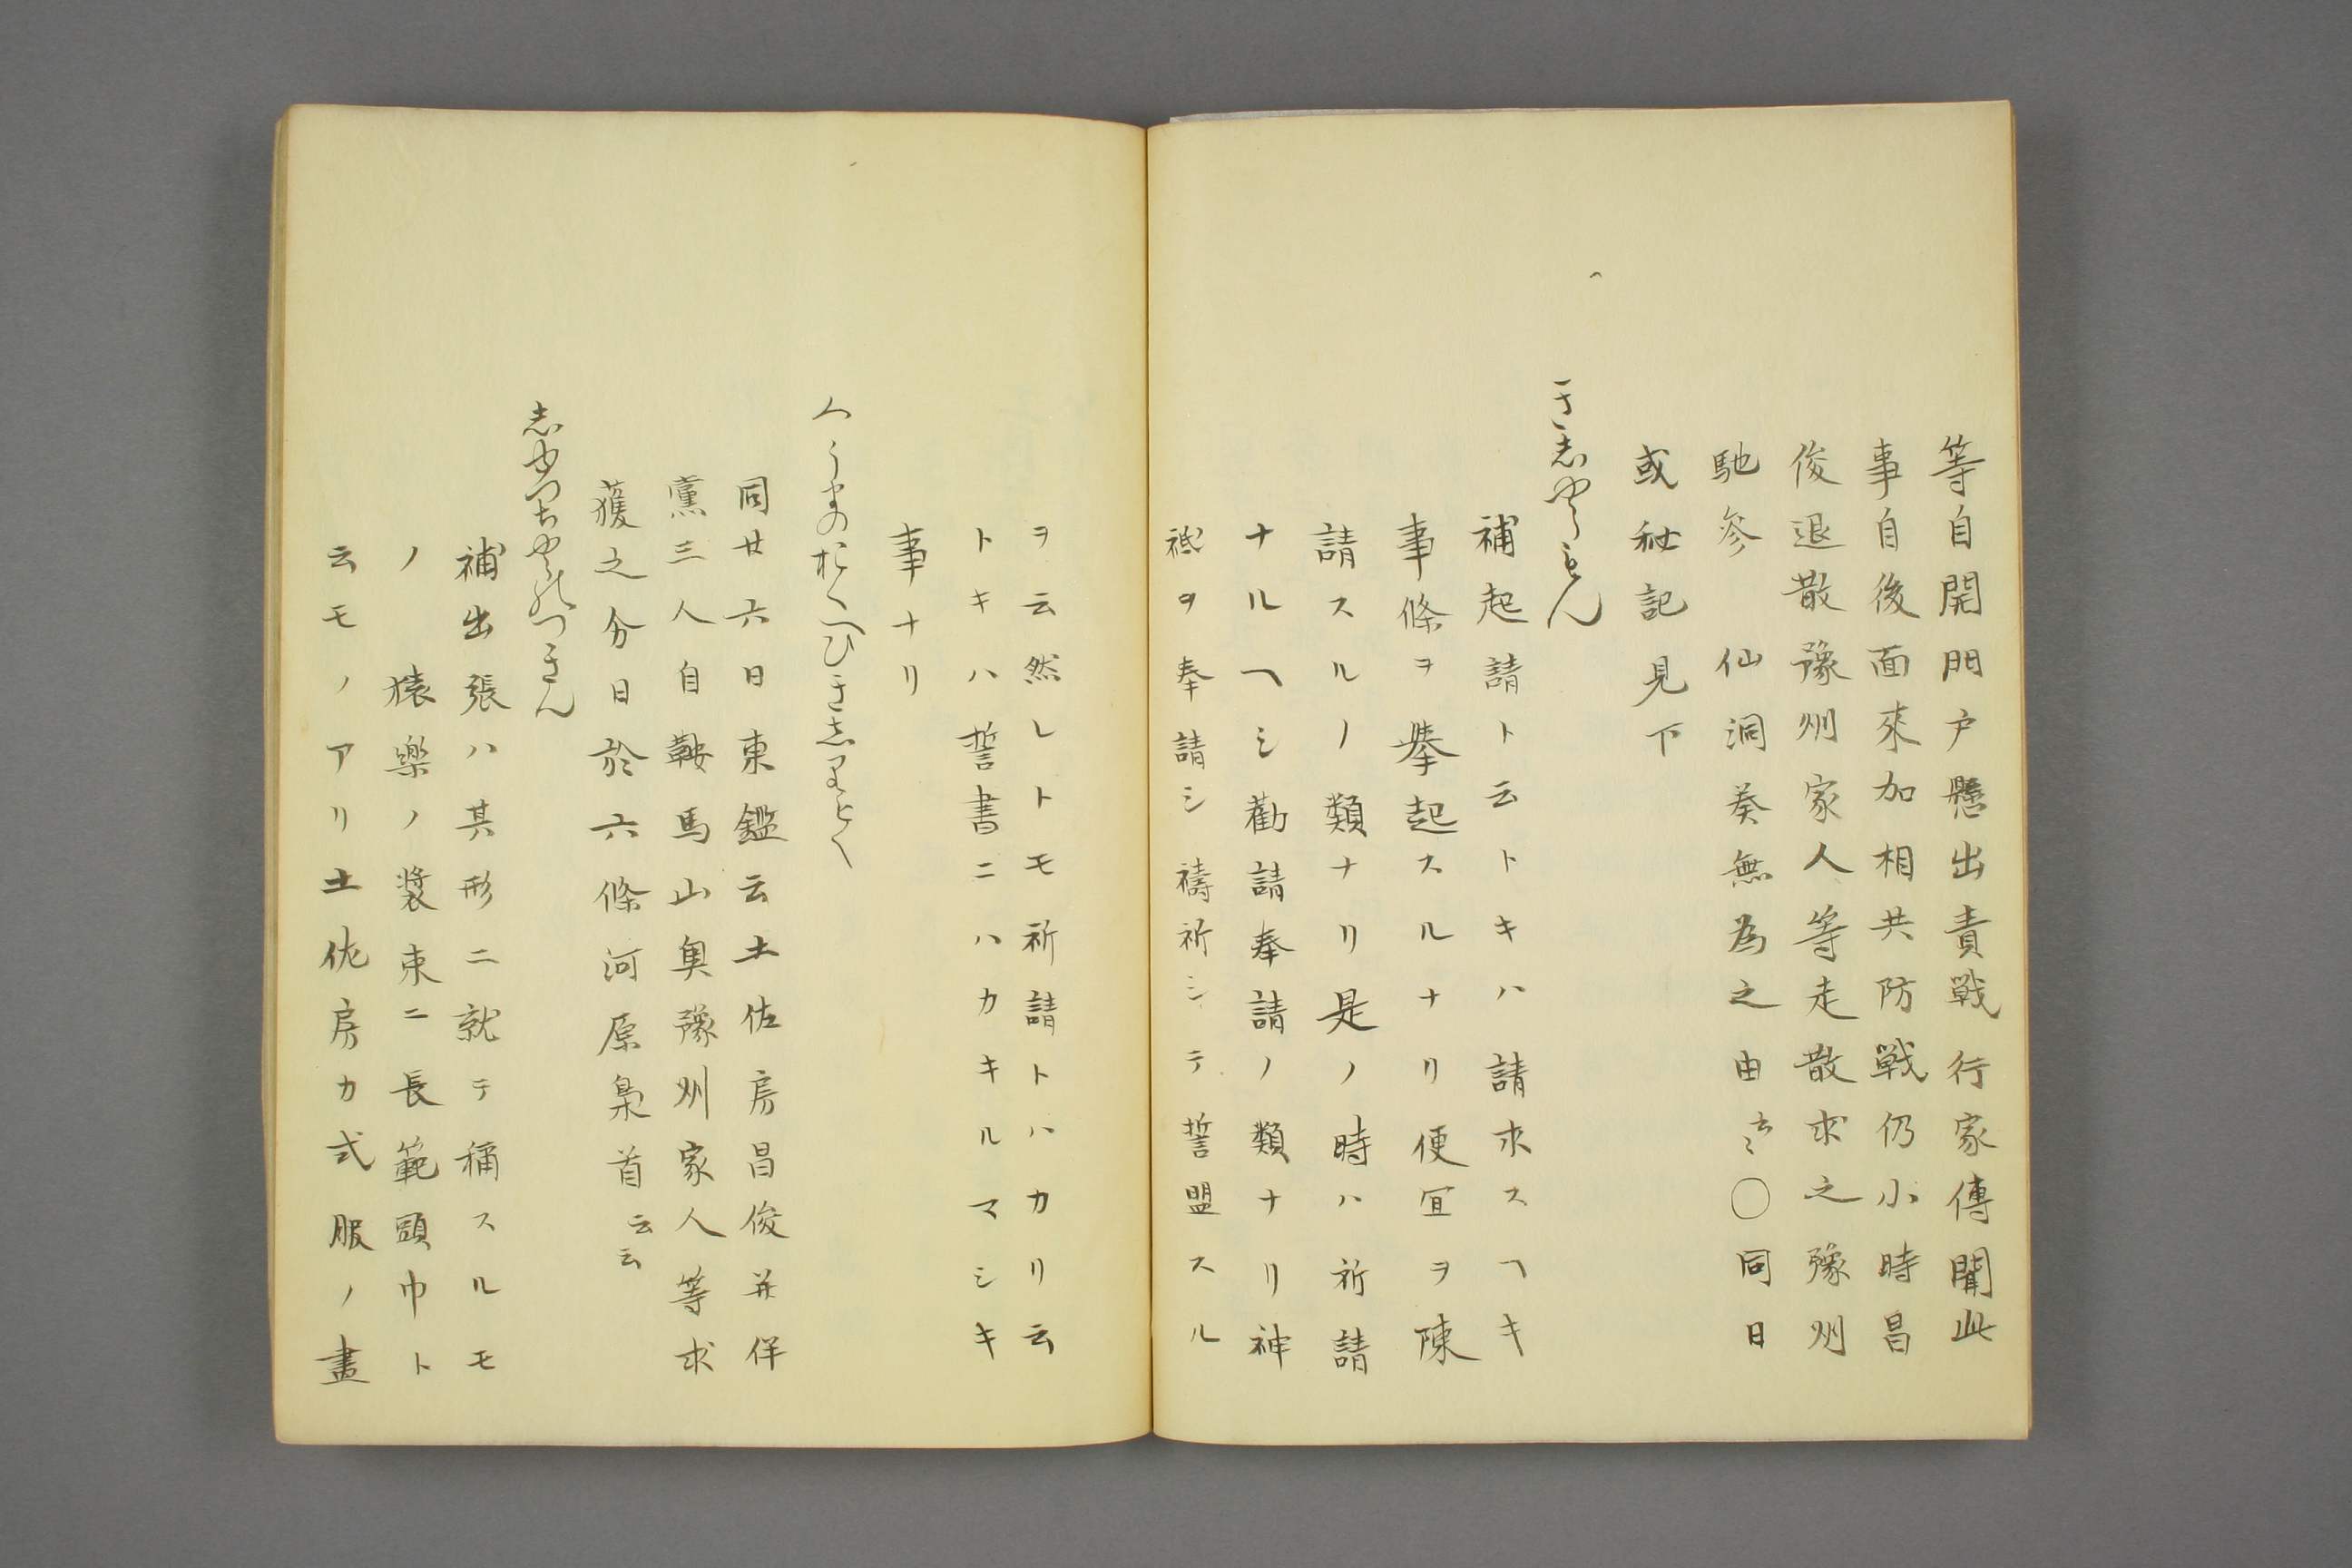 等自開門戸懸出責戰行家傳聞此
事自後面來加相共防戰仍小時昌
俊退散豫州家人等走散求之豫州
馳參　仙洞奏無為之由云々〇同日
或秘記見下
きしやうもん
補起請ト云トキハ請求スヘキ
事條ヲ擧起スルナリ便宜ヲ陳
請スルノ類ナリ是ノ時ハ祈請
ナルヘシ勸請奉請ノ類ナリ神
祗ヲ奉請シ禱祈シテ誓盟スル
ヲ云然レトモ祈請トハカリ云
トキハ誓書ニハカキルマシキ
事ナリ
くらまのおくへひきしりそく
同廿六日東鑑云土佐房昌俊并伴
黨三人自鞍馬山奥豫州家人等求
獲之今日於六條河原梟首云云
しゆつちやうのつきん
補出張ハ其形ニ就テ稱スルモ
ノ　猿樂ノ裝束ニ長範頭巾ト
云モノアリ土佐房カ式服ノ畫